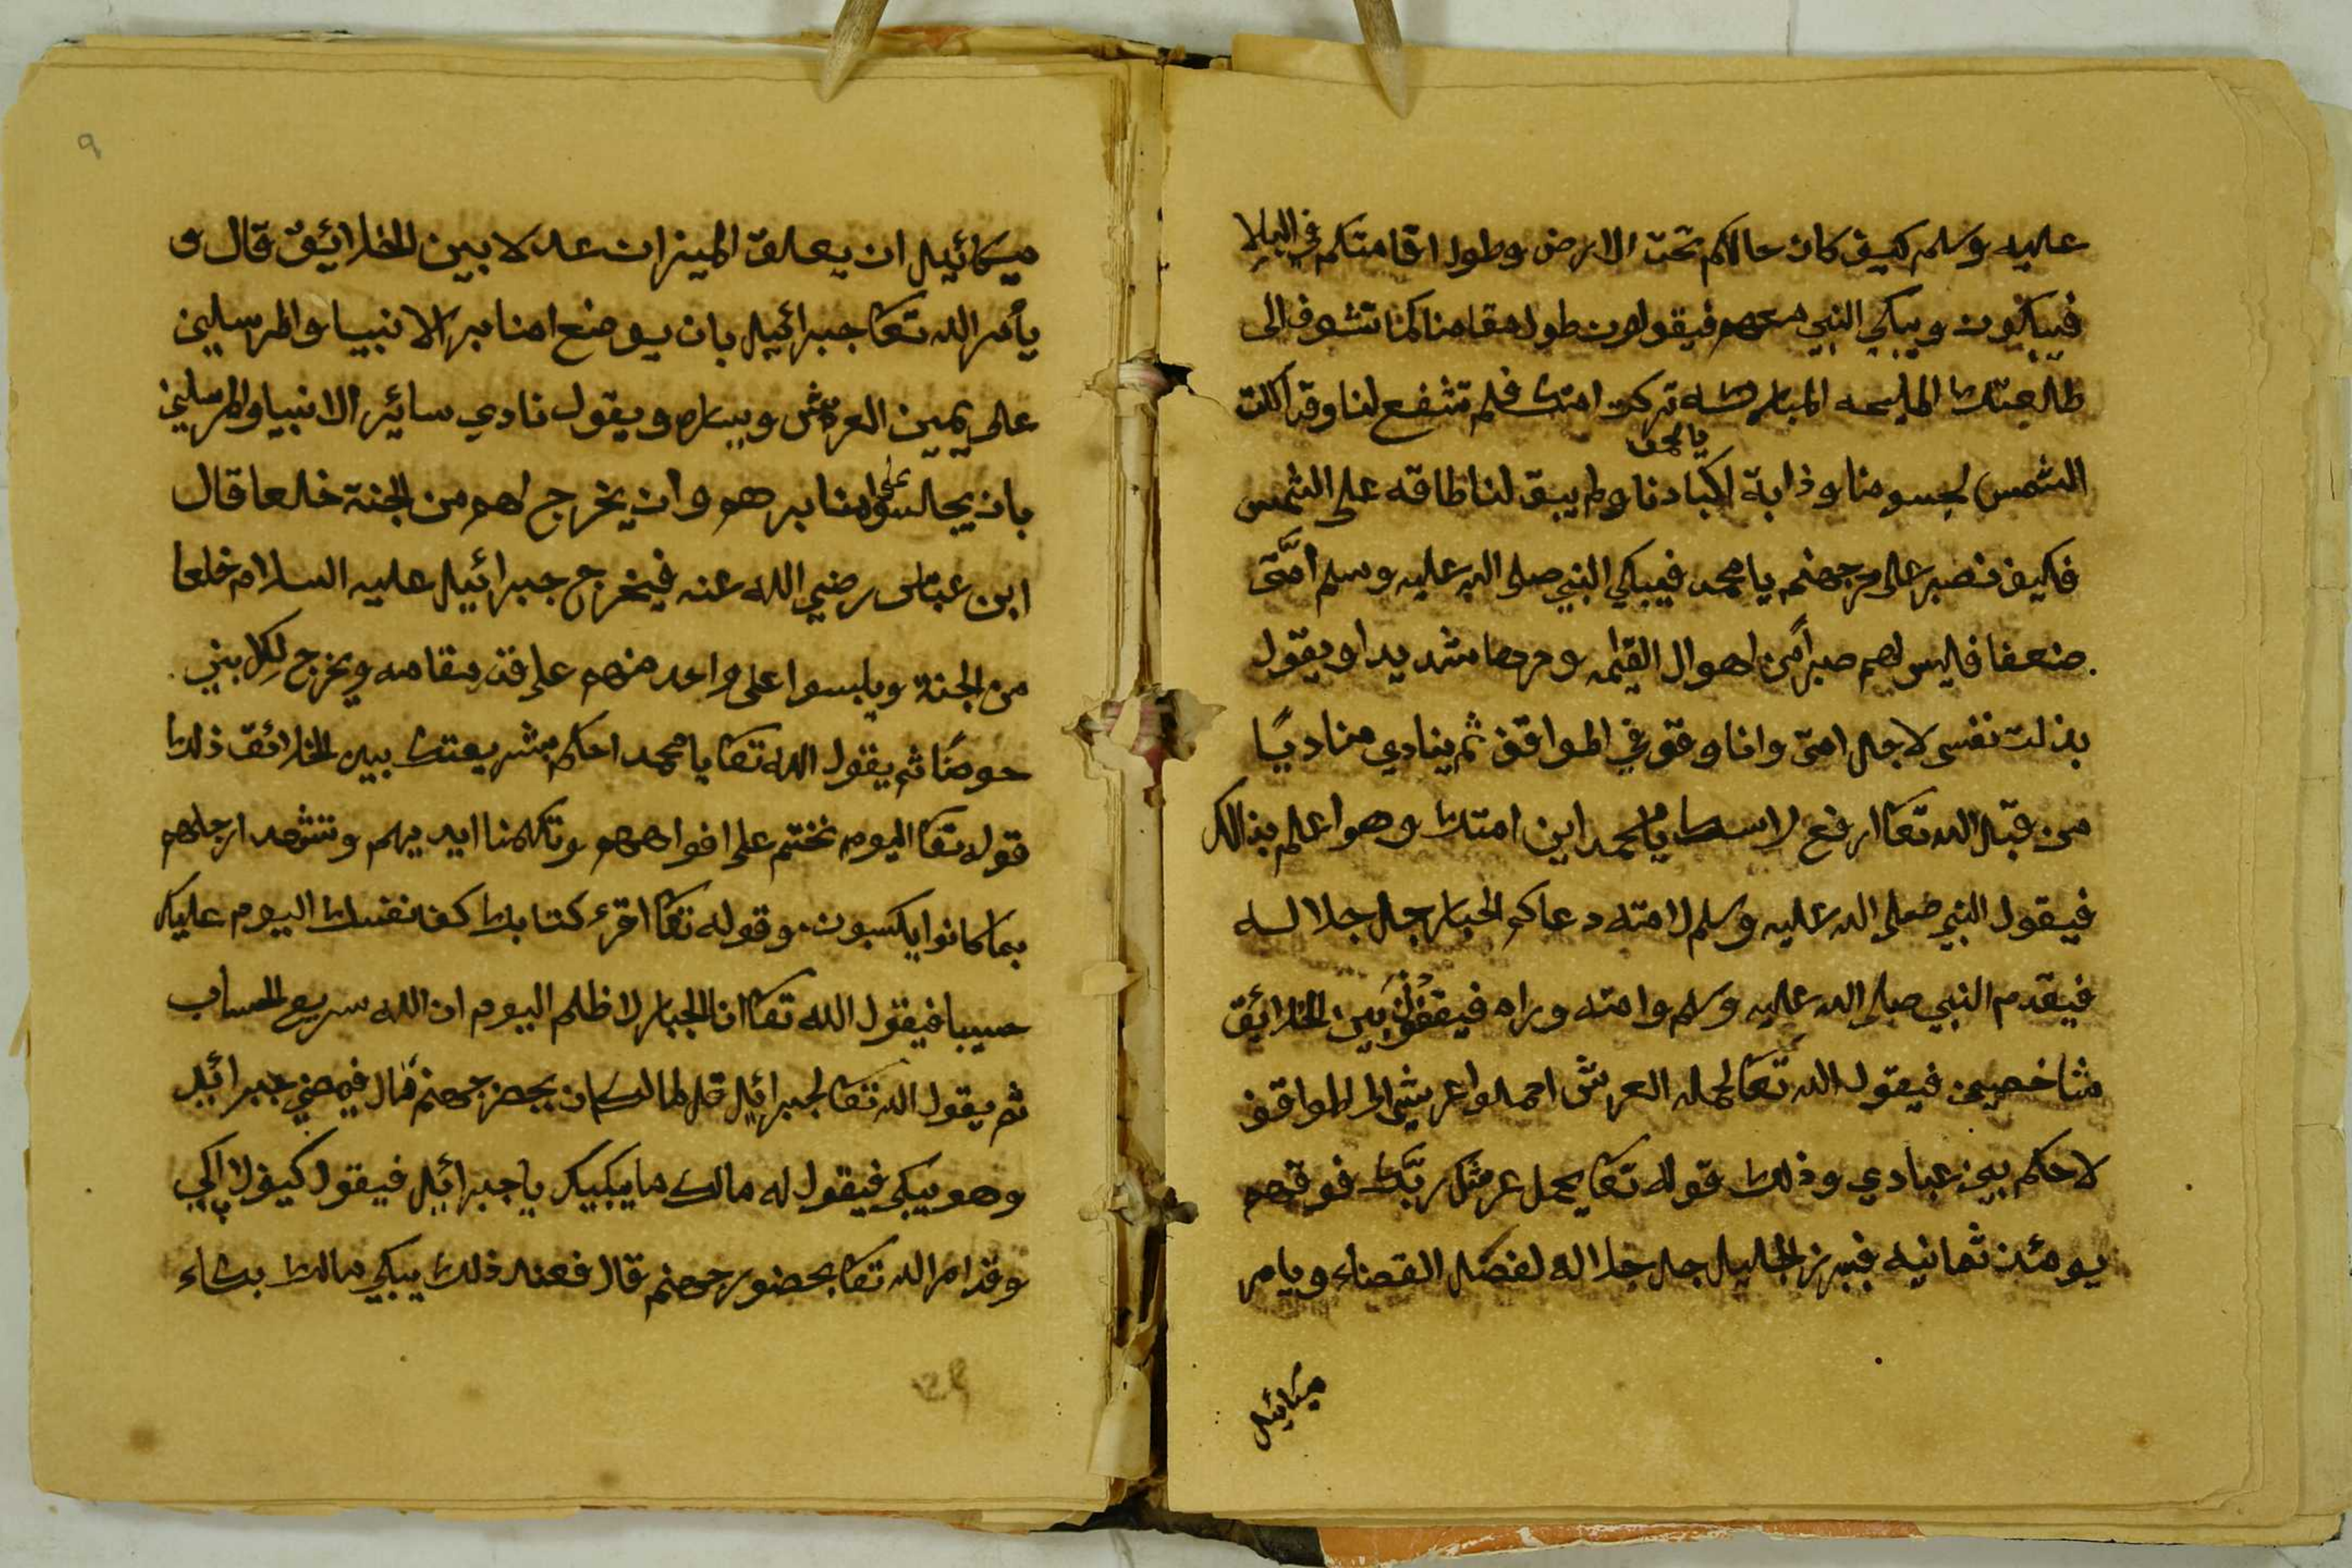 عليه وسلم كيف كان حالكم تحت الارض وطول اقامتكم في البلا
فيبكون ويبكي النبي معهم فيقولون طول مقامنا كنا نتشوف الى
طلعتك المليحه المباركه تركت امتك فلم تشفع لنا وقد اكلت
يا محمد
الشمس لجسومنا وذابة اكبادنا ولم يبق لنا طاقه على الشمس
فكيف نصبر على حر جهنم يا محمد فيبكي النبي صلى الله عليه وسلم امّتى
ضعفا فليس لهم صبراً من اهوال القيمه وحرها شديدا ويقول
بذلت نفسى لاجل امتى وانا وقوفي المواقف ثم ينادي مناديًا
من قبل الله تعا ارفع راسك يا محمد اين امتك وهو اعلم بذالك
فيقول النبي صلى الله عليه وسلم لامته دعاكم الجبار جل جلاله
فيقدم النبي صلى الله عليه وسلم وامته وراه فيقفون بين الخلائق
شاخصين فيقول الله تعا لحملة العرش احملوا عرشي الى المواقف
لاحكم بين عبادي وذلك قوله تعا يحمل عرش ربّك فوقهم
يومئذ ثمانيه فيبرز الجليل جل جلاله لفصل القضاء ويامر
ميكائيل
٩
ميكائيل ان يعلق الميزان عدلا بين الخلائق قال و
يأمر الله تعا جبرائيل بان يوضع امنابر الانبيا والمرسلين
على يمين العرش ويساره ويقول نادي سائر الانبيا والمرسلين
على
بان يجالسوا امنابرهم وان يخرج لهم من الجنة خلعا قال
ابن عباس رضي الله عنه فيخرج جبرائيل عليه السلام خلعا
من الجنة ويلبسوا على واحد منهم على قدر مقامه ويخرج لكل بني
حوضًا ثم يقول الله تعا يا محمد احكم بشريعتك بين الخلائق ذلك
قوله تعا اليوم نختم على افواههم وتكلمنا ايديهم وتشهد ارجلهم
بما كانوا يكسبون وقوله تعا اقرء كتابك كفا نفسك اليوم عليك
حسيبا فيقول الله تعا انا الجبار لا ظلم اليوم ان الله سريع الحساب
ثم يقول الله تعا لجبرائيل قل لمالك ان يحضر جهنم قال فيمضي جبرائيل
وهو يبكي فيقول له مالك ما يبكيك يا جبرائيل فيقول كيف لا ابكي
وقد امر الله تعا بحضور جهنم قال فعند ذلك يبكي مالك بكاء